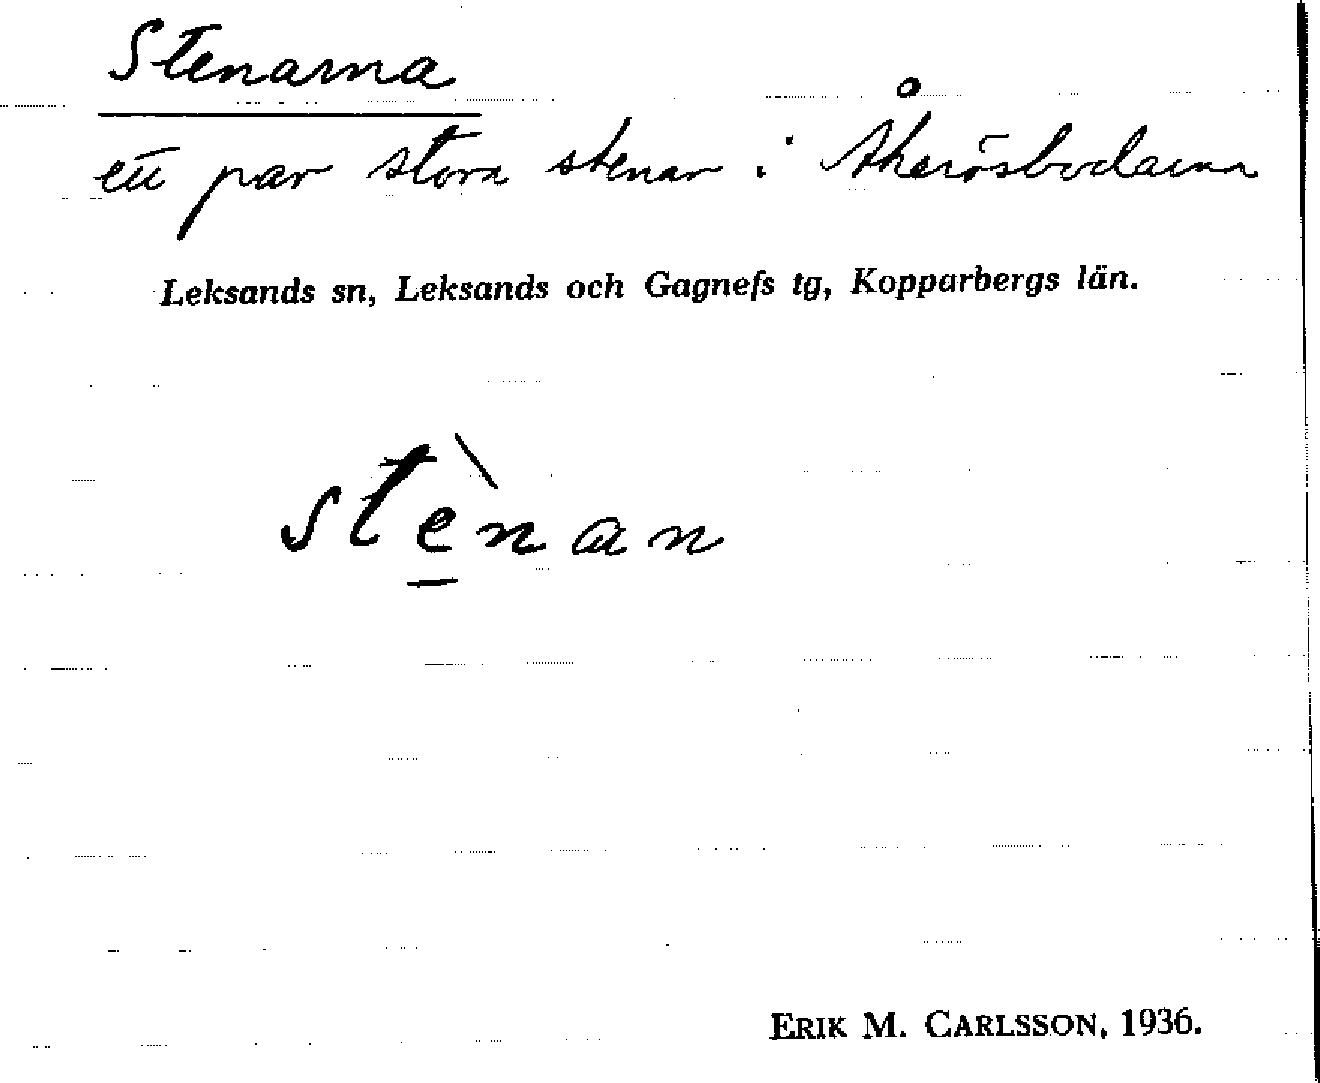 Stenarna
ett par stora stenar i Åkerösbodarna
Leksands sn, Leksands och Gagnefs tg, Kopparbergs län.
stè̲nan
ERIK M. CARLSSON, 1936.